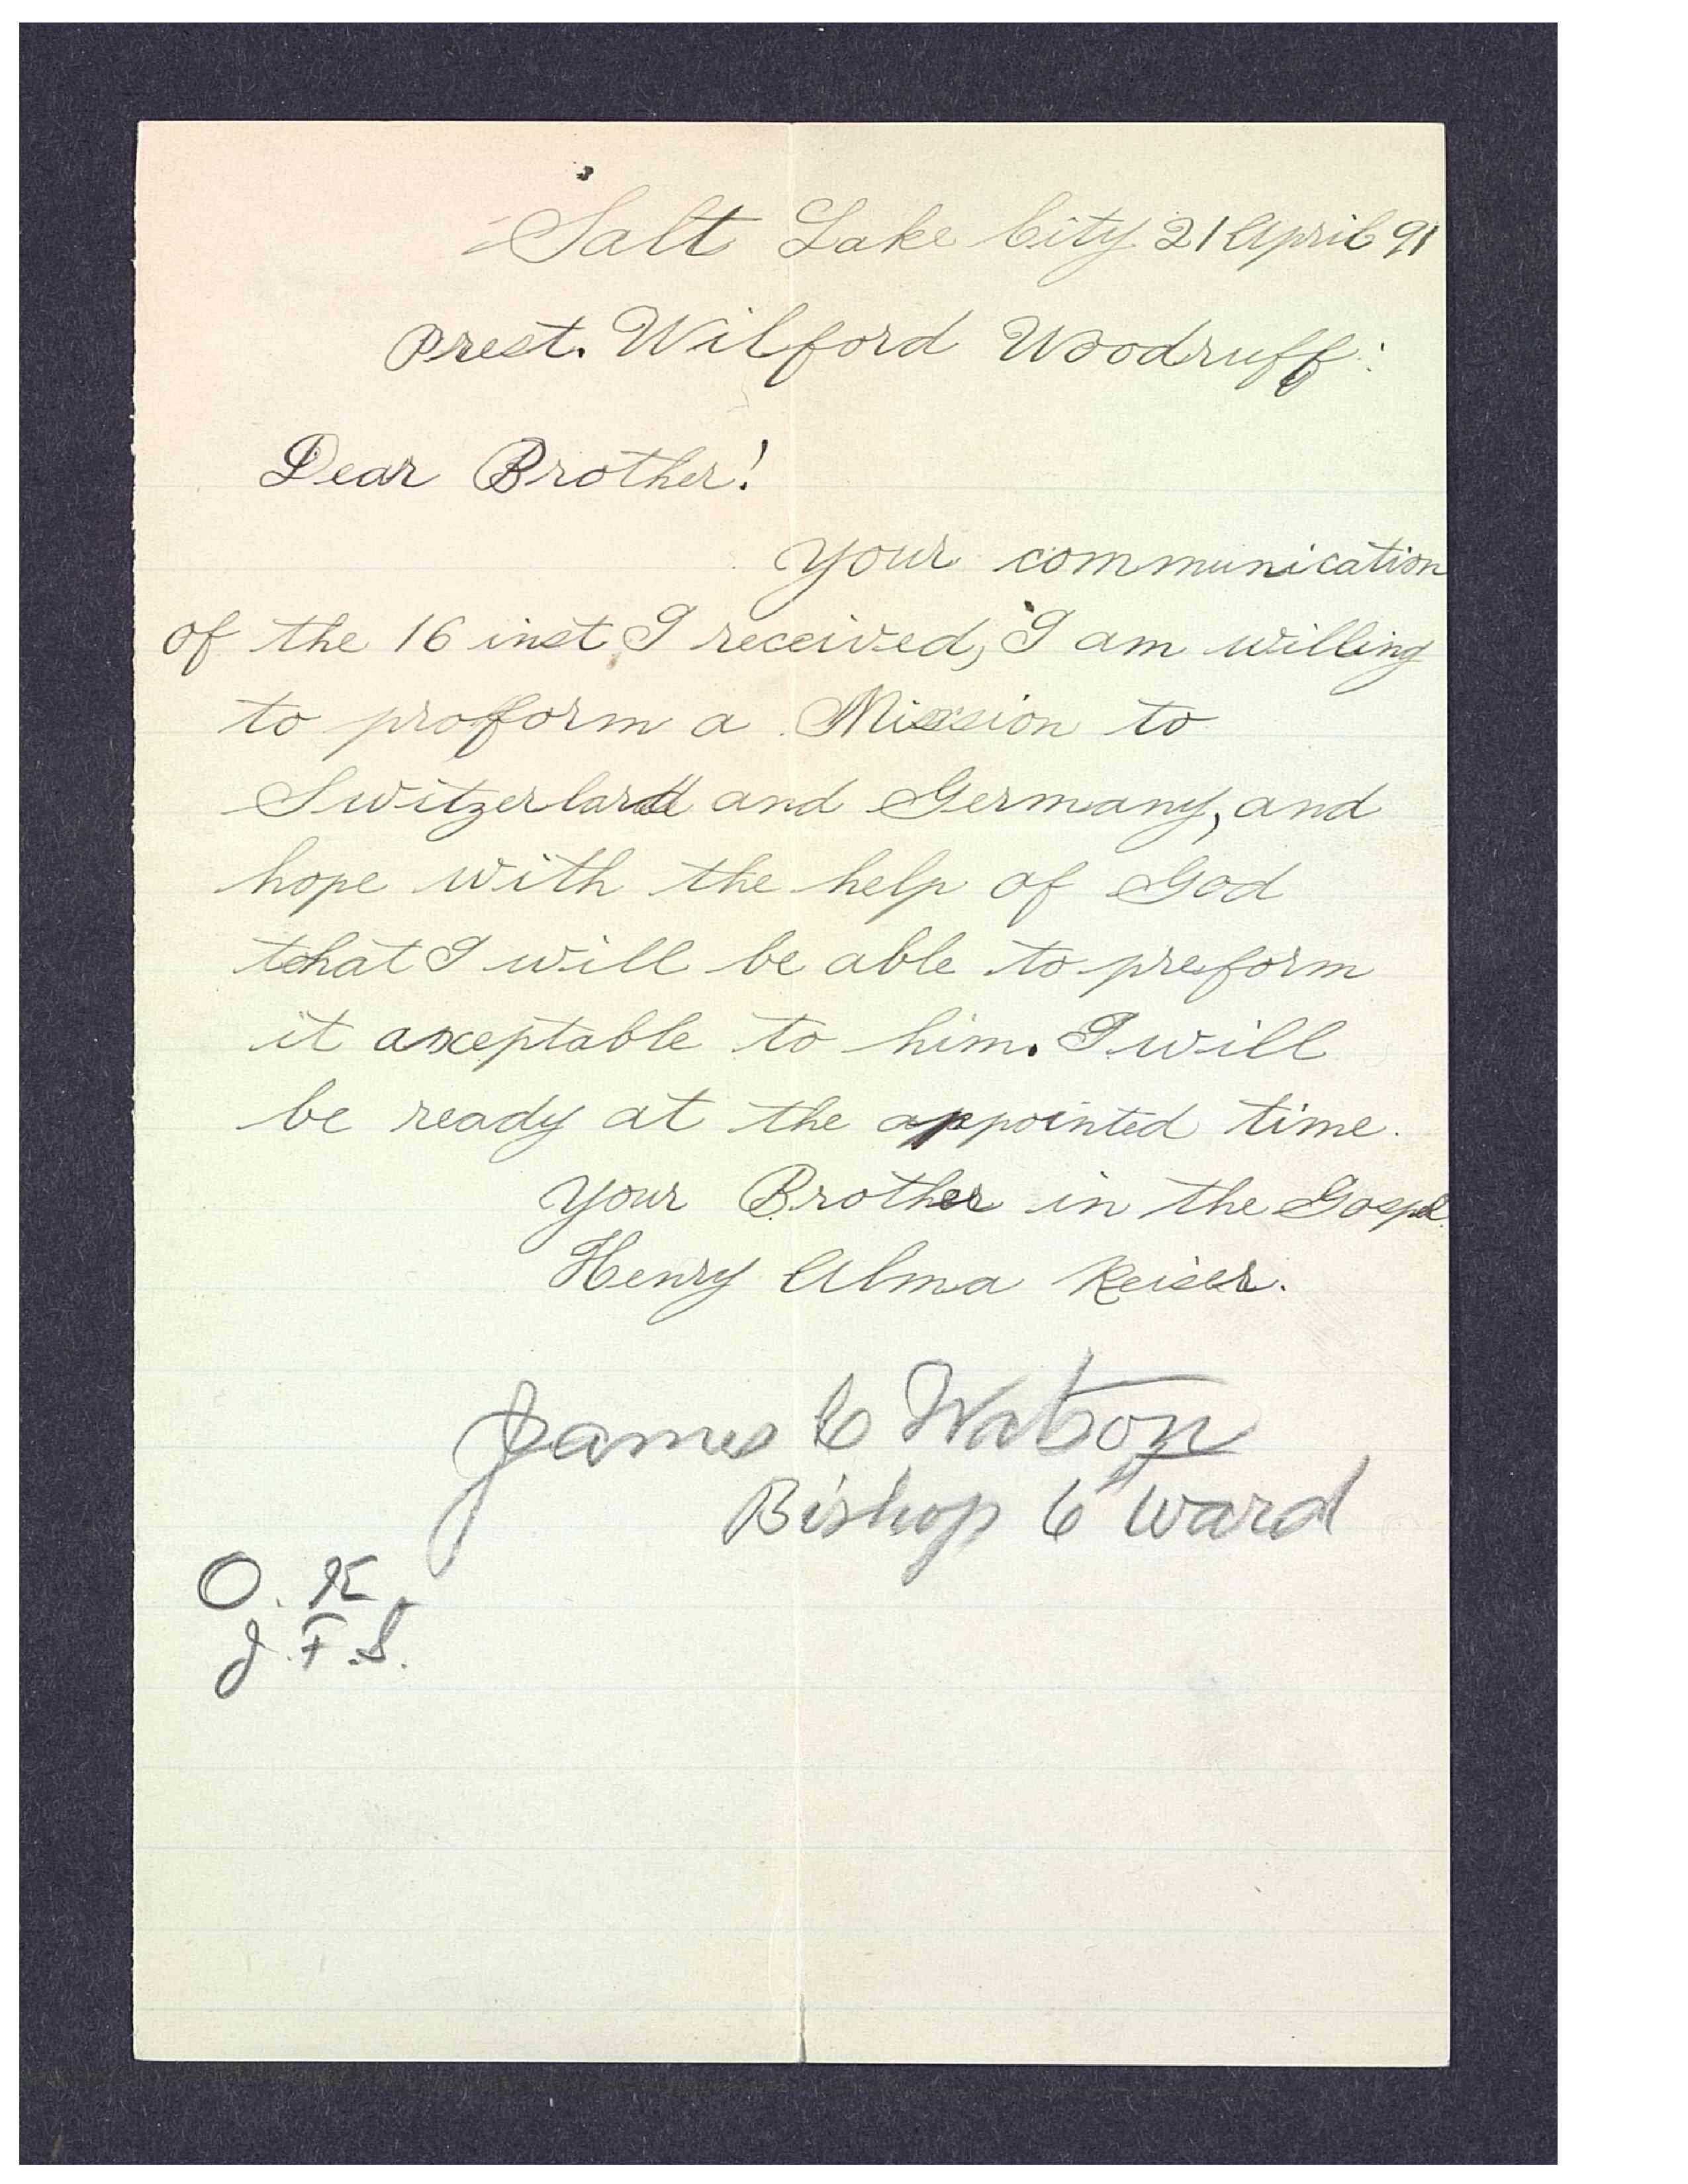 Salt Lake City 21 April 91
Prest. Wilford Woodruff:
Dear Brother!
Your communication
of the 16 inst I received, I am willing
to proform a Mission to
Switzerland and Germany, and
hope with the help of God
that I will be able to preform
it axceptable to him. I will
be ready at the appointed time.
Your Brother in the Gospel.
Henry Alma Keiser.
James C Watson
Bishop 6" Ward
O. K
J. F. S.